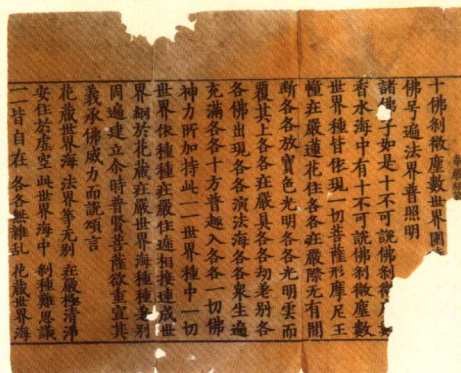 十佛剎微塵數世界圍
佛号遍法界普照明
諸佛子如是十不可說佛剎微
香水海中有十不可說佛剎微塵數
世界種皆依現一切菩薩形摩尼王
幢莊嚴蓮花住各各莊嚴際无有間
断各各放寶色光明各各光明雲而
覆其上各各莊嚴具各各劫差别各
各佛出現各各演法海各各衆生遍
充滿各各十方普趣入各各一切佛
神力所加持此一一世界種中一切
世界依種種莊嚴住遞相接連成世
界網於花藏莊嚴世界海種種差别
周遍建立尒時普賢菩薩欲重宣其
義承佛威力而說頌言
花藏世界海 法界等无别 莊嚴極清淨
安住於虛空 此世界海中 剎種難思議
一一皆自在 各各無雜乱 花藏世界海